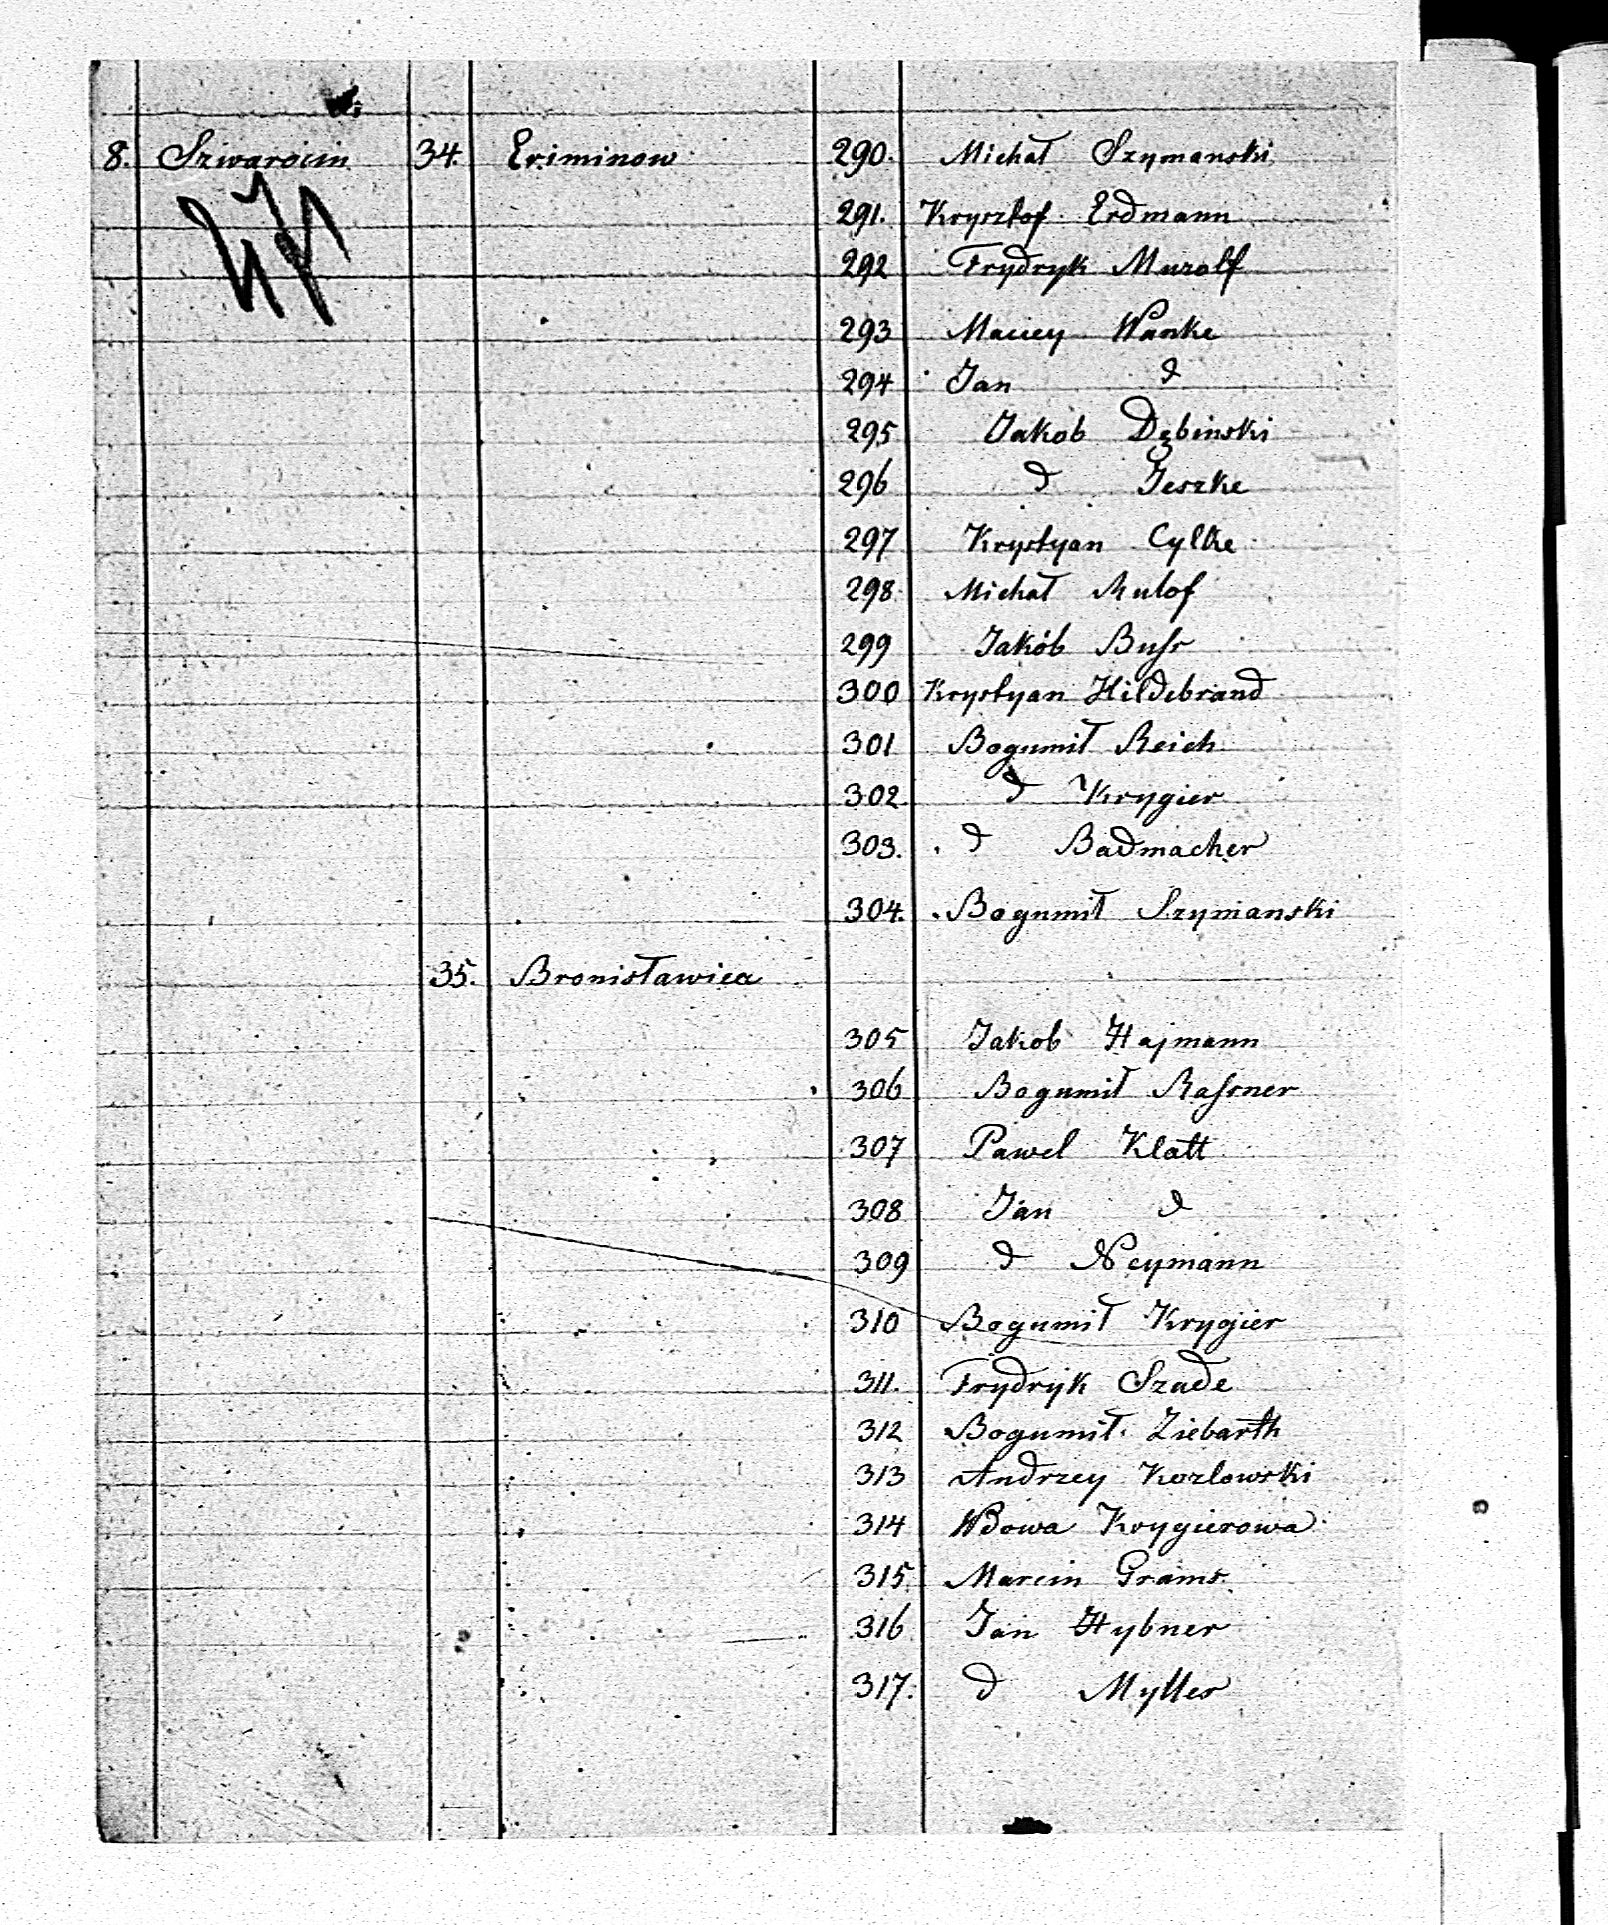 8. Szwarocin 34. Eriminow 290. Michał Szymanski
291. Krysztof Erdmann
292 Frydryk Murolf
293 Maciey Wanke
294 Jan d
295 Jakob Dębinski
296 d Jeszke
297 Krystyan Cylke
298 Michał Rulof
299 Jakób Buſs
300 Krystyan Hildebrand
301 Bogumił Reich
302 d Krygier
303. d Badmacher
304. Bogumił Szymanski
35. Bronisławica
305 Jakob Hajmann
306 Bogumił Raſsner
307 Pawel Klatt
308 Jan d
309 d Neymann
310 Bogumił Krygier
311. Frydryk Szade
312 Bogumił Ziebarth
313 Andrzey Kozlowski
314 Wdowa Krygierowa
315 Marcin Grams
316 Jan Hybner
317. d Myller